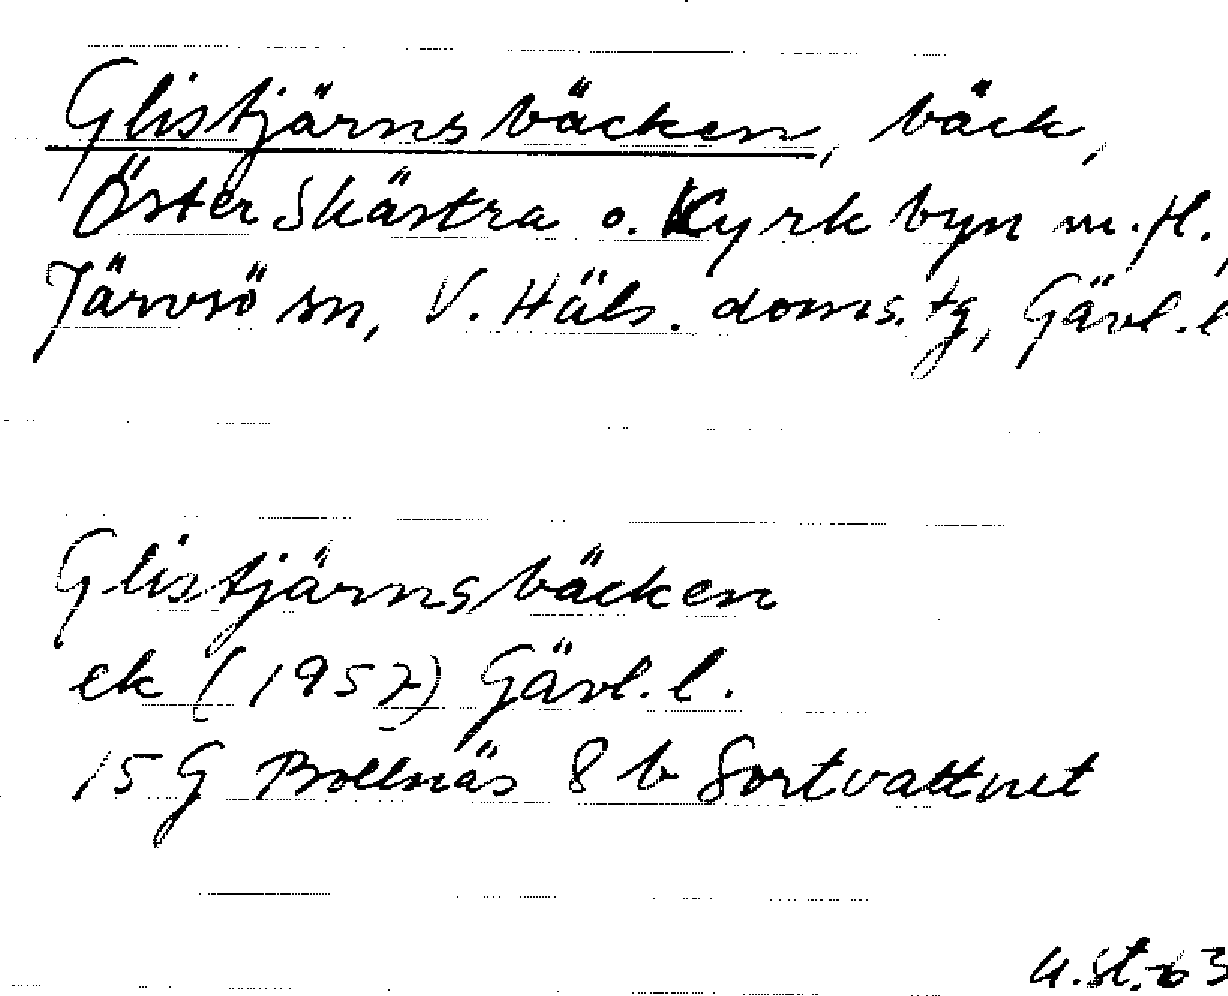 Glistjärnsbäcken, bäck,
Öster Skästra o. Kyrkbyn m.fl.,
Järvsö sn, V. Häls. doms.tg, Gävl.l
Glistjärnsbäcken
ek (1957) Gävl.l.
15 G Bollnäs 8 b Sortvattnet
u.st.-63